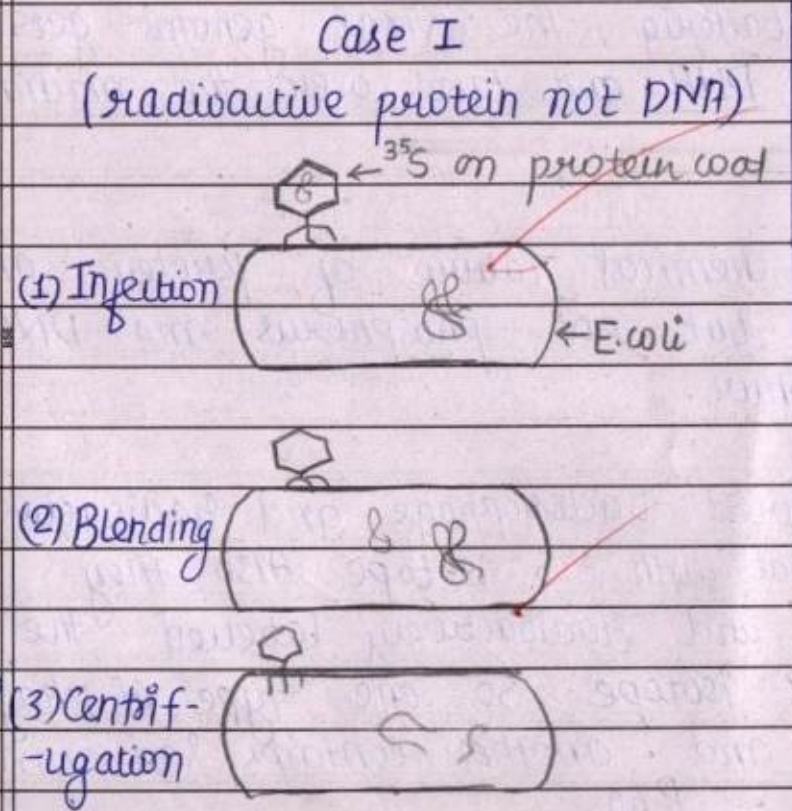 Case I
(radioactive protein not DNA)
← ³⁵S on protein coat
(1) Infection
← E.coli
(2) Blending
(3) Centrif-
-ugation